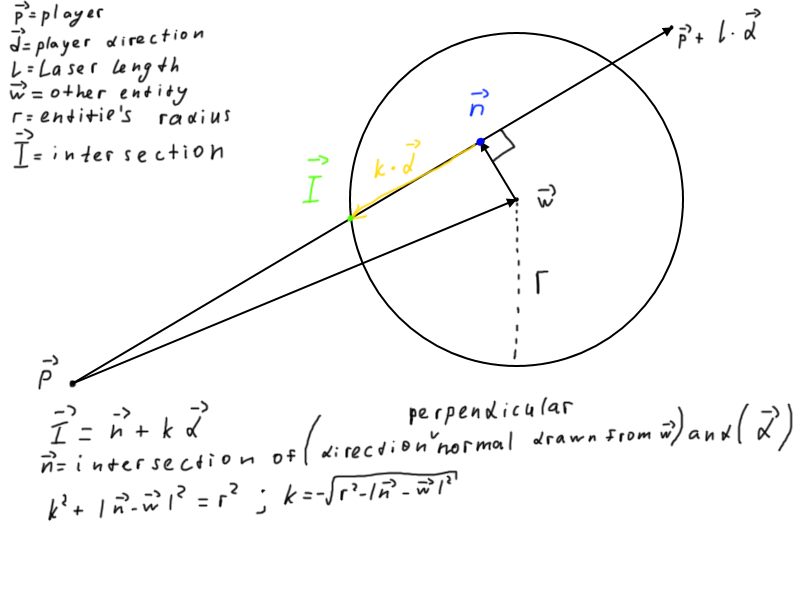 p⃗=player
d⃗=player direction
L=Laser length
w⃗=other entity
r=entitie's radius
I⃗=intersection
p⃗+l·d⃗
n⃗
k·d⃗
I⃗
w⃗
r
p⃗
I⃗ = n⃗ + k d⃗
perpendicular
n⃗=intersection of (direction ˇ normal drawn from w⃗) and (d⃗)
k²+ |n⃗-w⃗|² = r² ; k=-√(r²-|n⃗-w⃗|²)